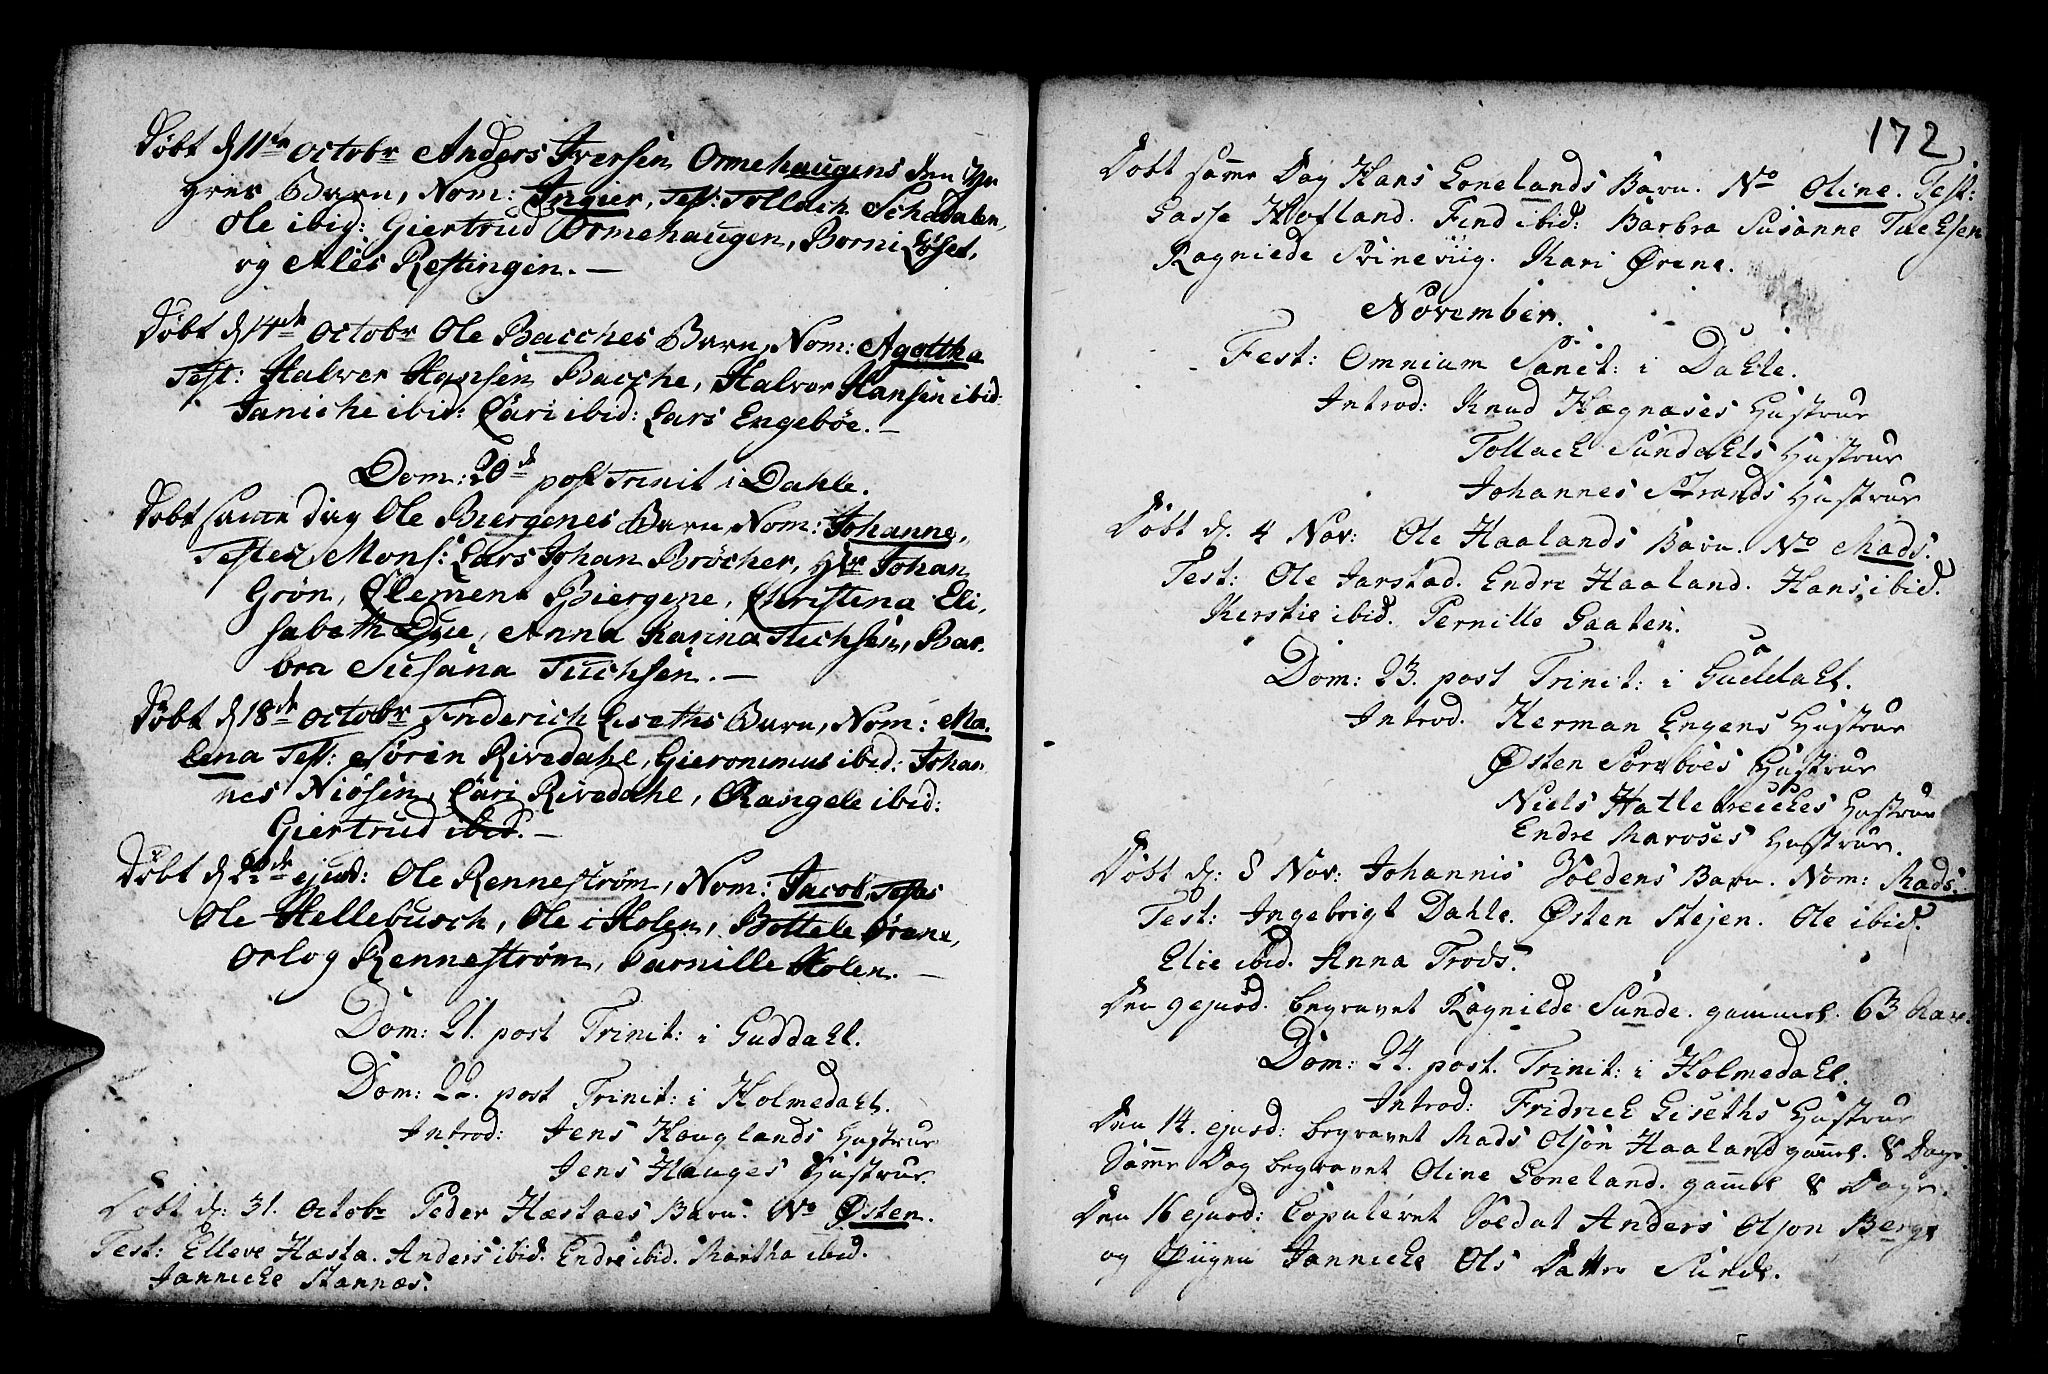 Døbt d 11te Octobr Anders Iversen Ormehaugens den Yn
gres Barn, Nom: Ingier, Test: Tollach Schadalen,
Ole ibid: Giertrud Ormehaugen, Borni Løset,
og Ales Restingen. —
Døbt d 14de Octobr Ole Bacches Barn, Nom: Agottha
Test: Halvor Hansen Bacche, Halvor Hansen ibid:
Janiche ibid: Cari ibid: Lars Engebøe. —
Dom: 20de post Trinit i Dahle.
Døbt samme Dag Ole Biergenes Barn, Nom: Johanne,
Testes Mons: Lars Johan Bröcher, Hr Johan
Grøn, Clemen Biergene, Christena Eli,
sabeth Due, Anna Karina Tuchsen, Bar-
bra Susana Tuchsen. —
Døbt d 18de Octobr Friderich Liseths Barn, Nom: Ma-
lena Test: Søren Rivedahl, Gieronimus ibid: Johan
nes Niösen, Cari Rivedahl, Rangele ibid:
Giertrud ibid. —
Døbt d 22de ejusd: Ole Renneström, Nom: Jacob, Testes
Ole Hellebusch, Ole i Holen, Bottele Ørene,
Orlog Renneström, Parnille Holen. —
Dom: 21. post Trinit: i Guddahl.
Dom: 22. post Trinit: i Holmedahl.
Introd: Jens Houglands Hustrue
Jens Hauges Hustrue.
Døbt d: 31. Octobr Peder Hæstaes Barn. No Østen.
Test: Elleve Hæsta. Anders ibid: Endre ibid. Martha ibid.
Jannicke Stannæs.
172
Døbt samme Dag Hans Lonelands Barn. No Oline. Test:
Lasse Hofland. Find ibid: Barbra Susanne Tuchsen
Ragniede Svineviig. Kari Ørene.
November.
Fest: Omnium Sanct: i Dahle.
Introd: Knud Hægnæses Hustrue
Tollach Sundahls Hustrue
Johannes Strands Hustrue
Døbt d. 4 Nov: Ole Haalands Barn. No Mads.
Test: Ole Jarstad. Endre Haaland. Hans ibid.
Kerstie ibid. Pernille Gaaten.
Dom: 23. post Trinit: i Guddahl.
Introd. Herman Engens Hustrue
Østen Sørebøes Hustrue
Niels Hatlebrecches Hustrue
Endre Marøses Hustrue.
Døbt d: 8 Nov: Johannis Voldens Barn. Nom: Mads.
Test: Ingebrigt Dahle. Østen Stejen. Ole ibid.
Elie ibid. Anna Trods.
Den 9 ejusd. begravet Ragnilde Sunde. gammel. 63 Aar.
Dom: 24. post. Trinit: i Holmedahl.
Introd: Fridrich Liseths Hustrue
Den 14. ejusd: begravet Mads Olsøn Haaland gammel. 8 Dage.
Samme Dag begravet Oline Loneland. gammel 8 Dage.
Den 16 ejusd: Copuleret Soldat Anders Olsøn Berge
og Piigen Jannicke Ols Datter Sunde.